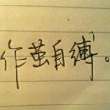 作茧自缚。